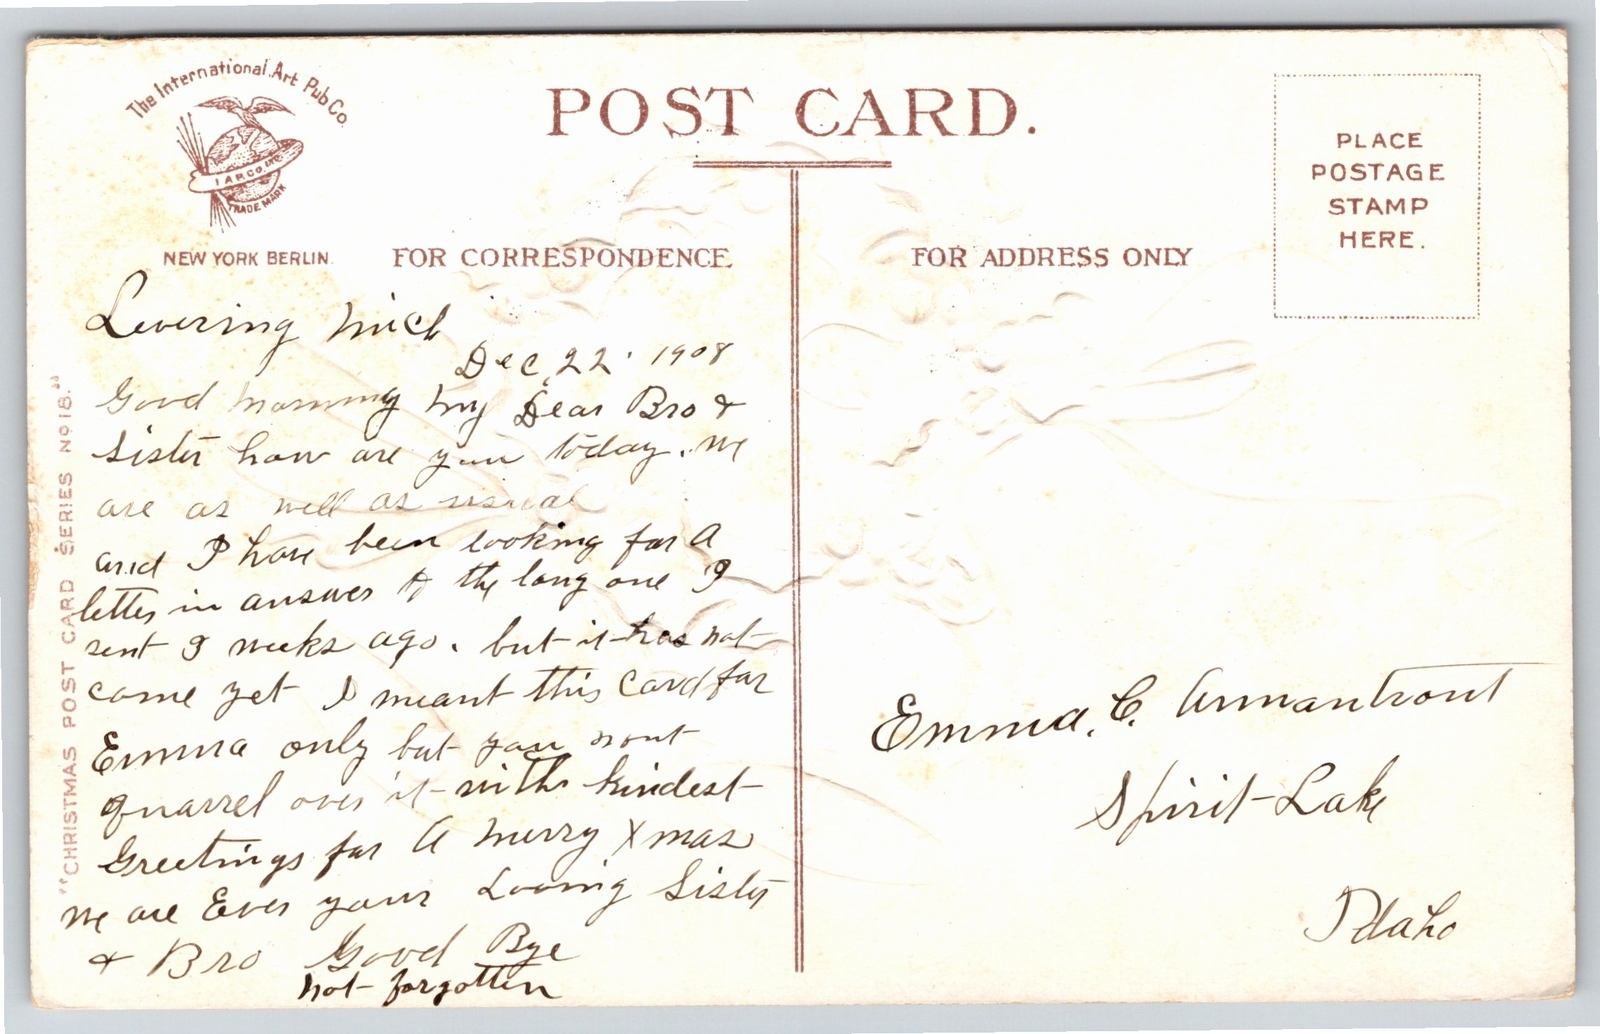 The International Art Pub Co.
I. A. P. Co. INC.
TRADE MARK
NEW YORK BERLIN.
POST CARD.
PLACE
POSTAGE
STAMP
HERE.
FOR CORRESPONDENCE
FOR ADDRESS ONLY
"CHRISTMAS POST CARD SERIES No 18."
Levering Mich
Dec, 22 1908
Good morning my Dear Bro &
Sister how are you today. we
are as well as usual
and I have been looking for A
letter in answer to the long one I
sent 3 weeks ago. but it has not
come yet I meant this Card for
Emma only but you wont
quarrel over it with kindest
Greetings for A Merry Xmas
we are Ever your Loving Sister
& Bro Good Bye
not forgotten
Emma. C. Armantrout
Spirit Lake
Idaho